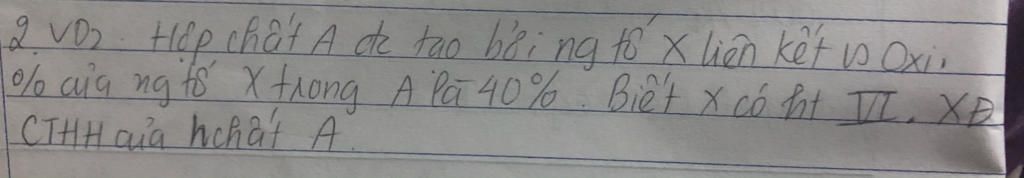 2. VD2. Hợp chất A đc tạo bởi ng tố X liên kết vs Oxi.
% của ng tố X trong A là 40%. Biết X có ht VI. XĐ
CTHH của hchất A.